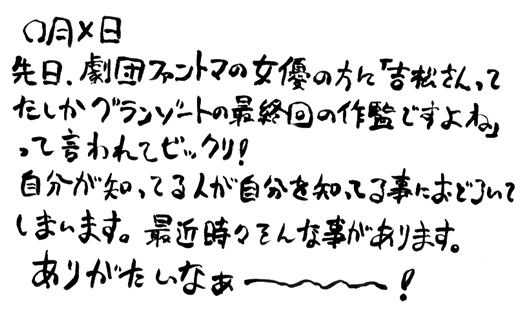 〇月×日
先日、劇団ファントマの女優の方に「吉松さんって
たしかグランゾートの最終回の作監ですよね」
って言われてビックリ!
自分が知ってる人が自分を知ってる事におどろいて
しまいます。最近時々そんな事があります。
ありがたいなぁ〜〜〜!